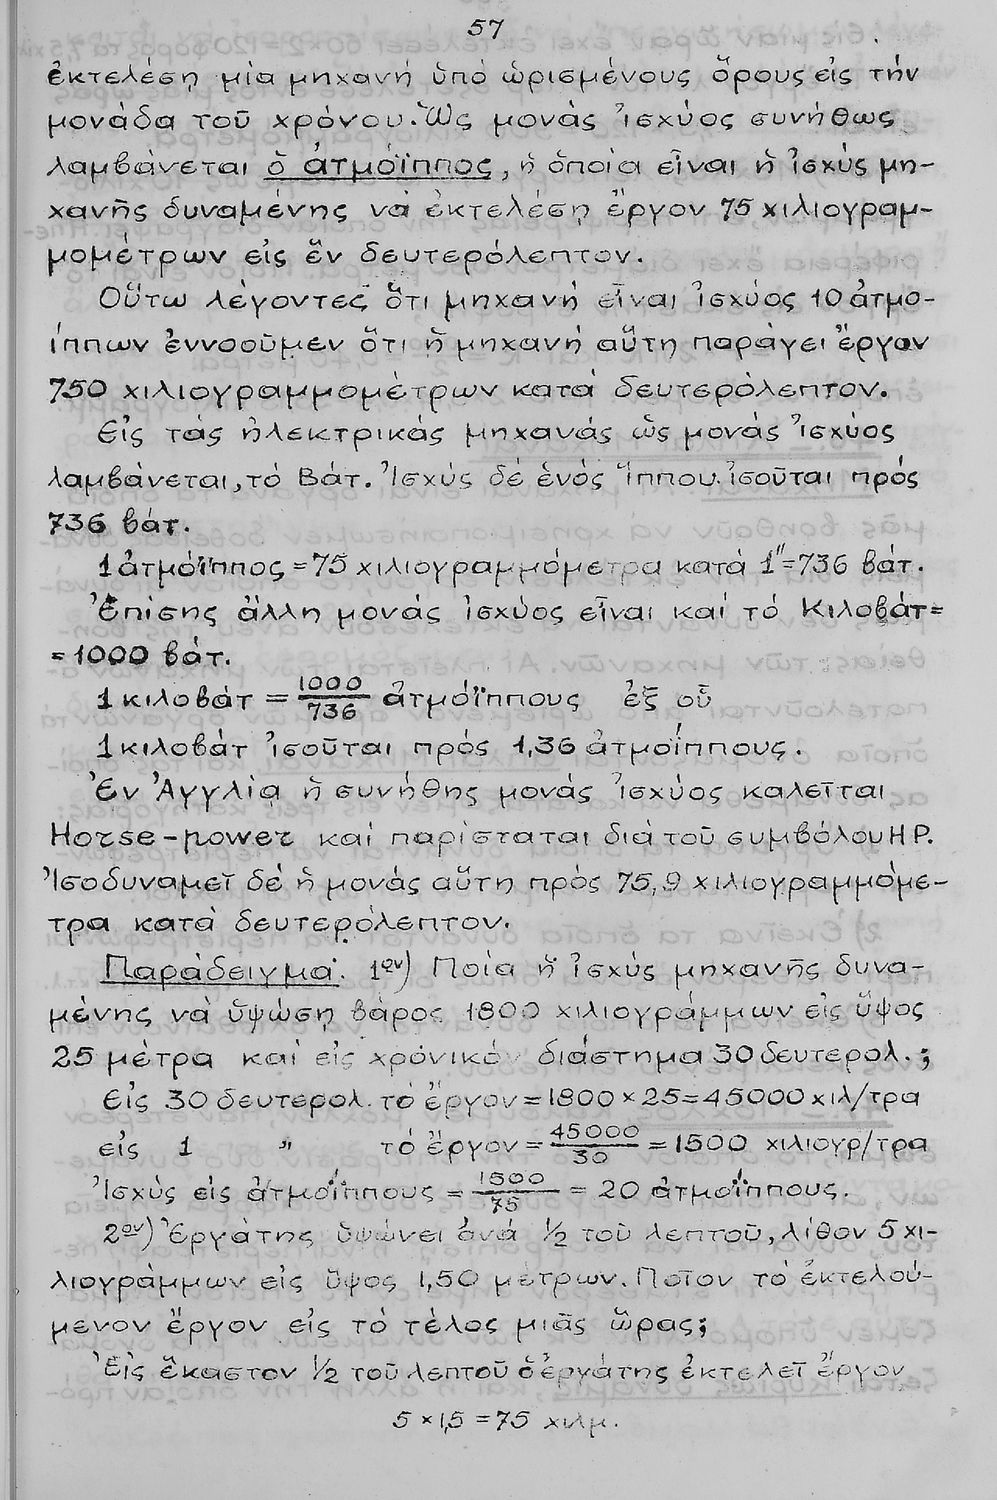 57
ἐκτελέση μία μηχανή ὑπό ὡρισμένους ὅρους εἰς τήν
μονάδα τοῦ χρόνου. Ὡς μονάς ἰσχύος συνήθως
λαμβάνεται ὁ ἀτμόϊππος, ἡ ὁποία εἶναι ἡ ἰσχύς μη-
χανῆς δυναμένης νά ἐκτελέση ἔργον 75 χιλιογραμ-
μομέτρων εἰς ἕν δευτερόλεπτον.
Οὕτω λέγοντες ὅτι μηχανή εἶναι ἰσχύος 10 ἀτμο-
ίππων ἐννοοῦμεν ὅτι ἡ μηχανή αὕτη παράγει ἔργον
750 χιλιογραμμομέτρων κατά δευτερόλεπτον.
Εἰς τάς ἠλεκτρικάς μηχανάς ὡς μονάς ἰσχύος
λαμβάνεται, τό Βάτ. Ἰσχύς δέ ἑνός ἵππου ἰσοῦται πρός
736 βάτ.
1 ἀτμόϊππος = 75 χιλιογραμμόμετρα κατά 1" = 736 βάτ.
Ἐπίσης ἄλλη μονάς ἰσχύος εἶναι καί τό Κιλοβάτ =
= 1000 βάτ.
1 κιλοβάτ = 1000/736 ἀτμόϊππους ἐξ οὗ
1 κιλοβάτ ἰσοῦται πρός 1,36 ἀτμοΐππους.
Ἐν Ἀγγλία ἡ συνήθης μονάς ἰσχύος καλεῖται
Horse-power καί παρίσταται διά τοῦ συμβόλου HP.
Ἰσοδυναμεῖ δέ ἡ μονάς αὕτη πρός 75,9 χιλιογραμμόμε-
τρα κατά δευτερόλεπτον.
Παράδειγμα. 1ον) Ποία ἡ ἰσχύς μηχανῆς δυνα-
μένης νά ὑψώση βάρος 1800 χιλιογράμμων εἰς ὕψος
25 μέτρα καί εἰς χρόνικόν διάστημα 30 δευτερολ.;
Εἰς 30 δευτερολ. τό ἔργον = 1800 × 25 = 45000 χιλ/τρα
εἰς 1 " τό ἔργον = 45000/30 = 1500 χιλιογρ/τρα
Ἰσχύς εἰς ἀτμοΐππους = 1500/75 = 20 ἀτμοΐππους.
2ον) Ἐργάτης ὑψώνει ἀνά 1/2 τοῦ λεπτοῦ, λίθον 5 χι-
λιογράμμων εἰς ὕψος 1,50 μέτρων. Ποῖον τό ἐκτελού-
μενον ἔργον εἰς τό τέλος μιᾶς ὥρας;
Εἰς ἕκαστον 1/2 τοῦ λεπτοῦ ὁ ἐργάτης ἐκτελεῖ ἔργον
5 × 1,5 = 75 χιλμ.